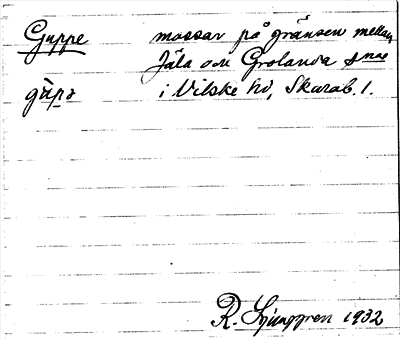 Guppe mossar på gränsen mellan
Jäla och Grolanda snar
gùpə i Vilske hd, Skarab. l.
R. Ljunggren 1932